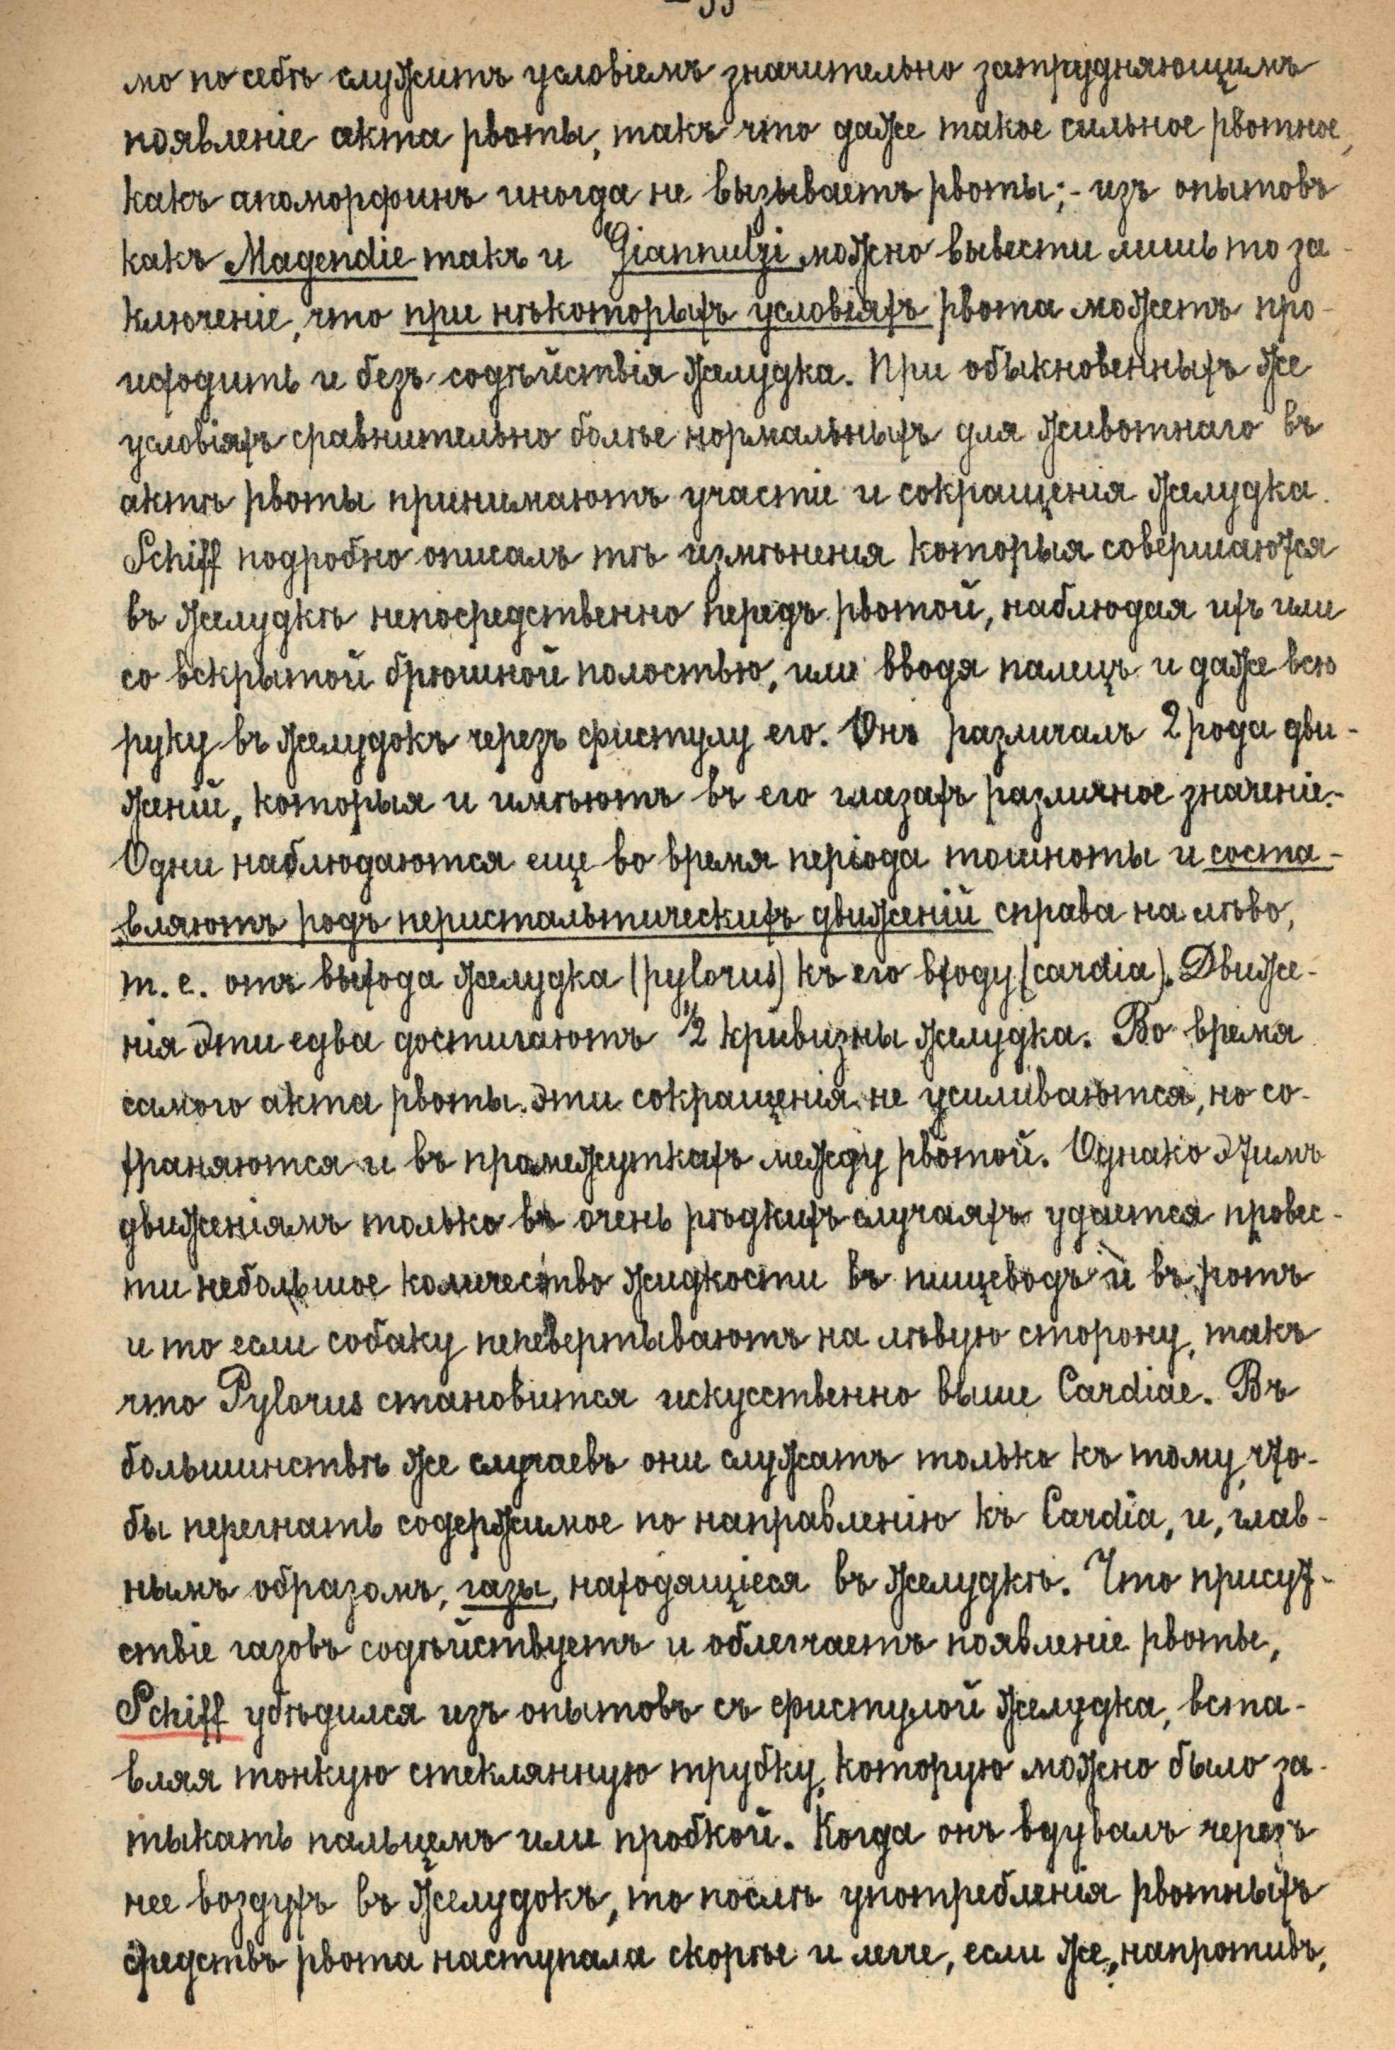 мо по себѣ служитъ условіемъ значительно затрудняющимъ
появленіе акта рвоты, такъ что даже такое сильное рвотное,
какъ апоморфинъ иногда не вызываетъ рвоты;- изъ опытовъ
какъ Magendie такъ и Giannuzzi можно вывести лишь то за-
ключеніе, что при нѣкоторыхъ условіяхъ рвота можетъ про-
исходить и безъ содѣйствія желудка. При обыкновенныхъ же
условіяхъ сравнительно болѣе нормальныхъ для животнаго въ
актѣ рвоты принимаютъ участіе и сокращенія желудка.
Schiff подробно описалъ тѣ измѣненія которыя совершаются
въ желудкѣ непосредственно передъ рвотой, наблюдая ихъ или
со вскрытой брюшной полостью, или вводя палецъ и даже всю
руку въ желудокъ черезъ фистулу его. Онъ различалъ 2 рода дви-
женій, которыя и имѣютъ въ его глазахъ различное значеніе.-
Одни наблюдаются еще во время періода тошноты и соста-
вляютъ родъ перистальтическихъ движеній справа на лѣво,
т. е. отъ выхода желудка (pylorus) къ его входу (cardia). Движе-
нія эти едва достигаютъ ½ кривизны желудка. Во время
самого акта рвоты эти сокращенія не усиливаются, но со-
храняются и въ промежуткахъ между рвотой. Однако этимъ
движеніямъ только въ очень рѣдкихъ случаяхъ удается провес-
ти небольшое количество жидкости въ пищеводъ и въ ротъ
и то если собаку перевертываютъ на лѣвую сторону, такъ
что Pylorus становится искусственно выше Cardiae. Въ
большинствѣ же случаевъ они служатъ только къ тому, что-
бы перегнать содержимое по направленію къ Cardia, и, глав-
нымъ образомъ, газы, находящіеся въ желудкѣ. Что присут-
ствіе газовъ содѣйствуетъ и облегчаетъ появленіе рвоты,
Schiff убѣдился изъ опытовъ съ фистулой желудка, вста-
вляя тонкую стеклянную трубку, которую можно было за-
тыкать пальцемъ или пробкой. Когда онъ вдувалъ черезъ
нее воздухъ въ желудокъ, то послѣ употребленія рвотныхъ
средствъ рвота наступала скорѣе и легче, если же, напротивъ,